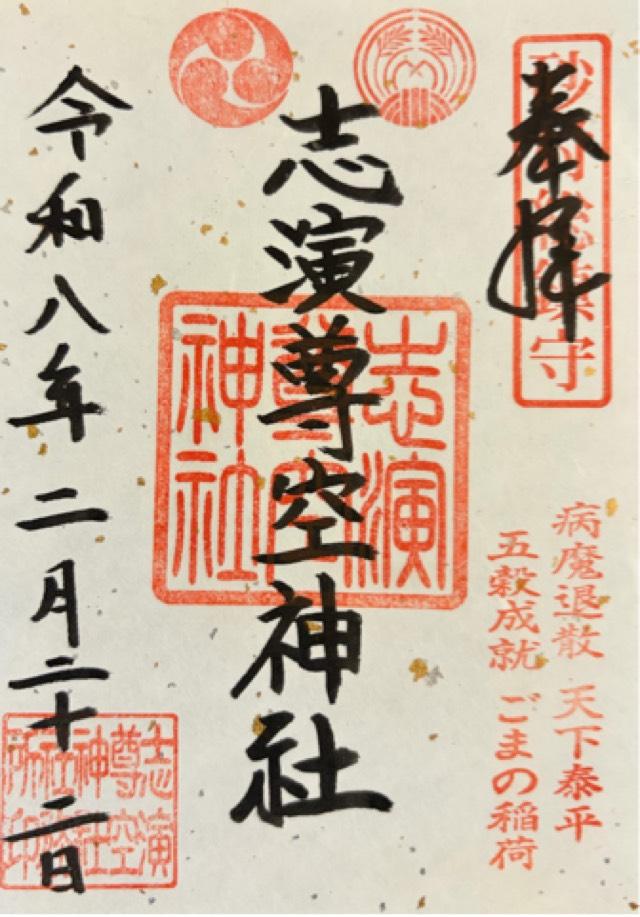 奉拝
砂村総鎮守
病魔退散 天下泰平
五穀成就 ごまの稲荷
志演尊空神社
志演尊空神社
令和八年二月二十二日
志演尊空神社社務所印